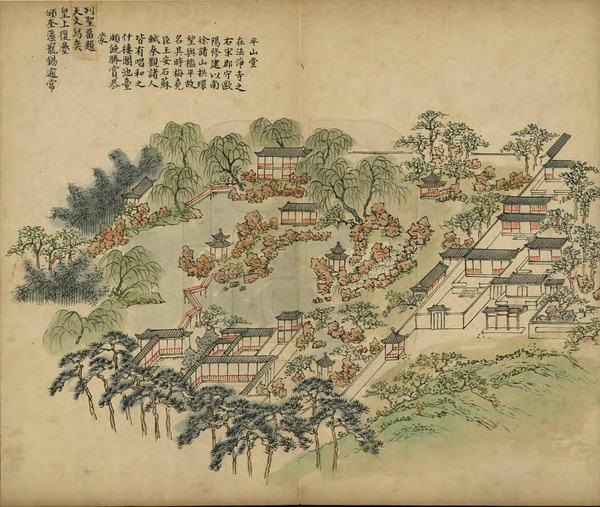 平山堂
在法淨寺之
右宋郡守歐
陽修建以南
徐諸山拱環
望與檻平故
名其時梅堯
臣王安石蘇
軾秦觀諸人
皆有唱和之
什樓閣池臺
頗饒勝賞恭
蒙
列聖畱題
天文舄奕
皇上復疊
頒奎藻寵錫逾常